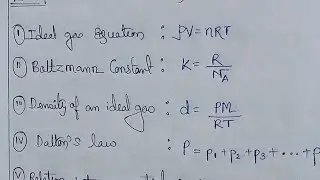 i) Ideal gas equation : PV = nRT
ii) Boltzmann Constant : K = R/N_A
iii) Density of an ideal gas : d = PM/RT
iv) Dalton's law : P = P₁ + P₂ + P₃ + ... + P
v) Relation